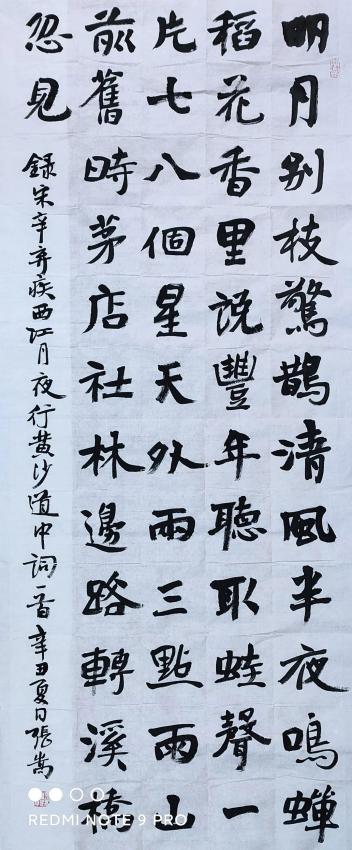 明月别枝驚鵲清風半夜鳴蟬
稻花香里説豐年聽取蛙聲一
片七八個星天外兩三點雨山
前舊時茅店社林邊路轉溪橋
忽見
錄宋辛弃疾西江月夜行黄沙道中詞一首辛丑夏日張嵩
REDMI NOTE 9 PRO